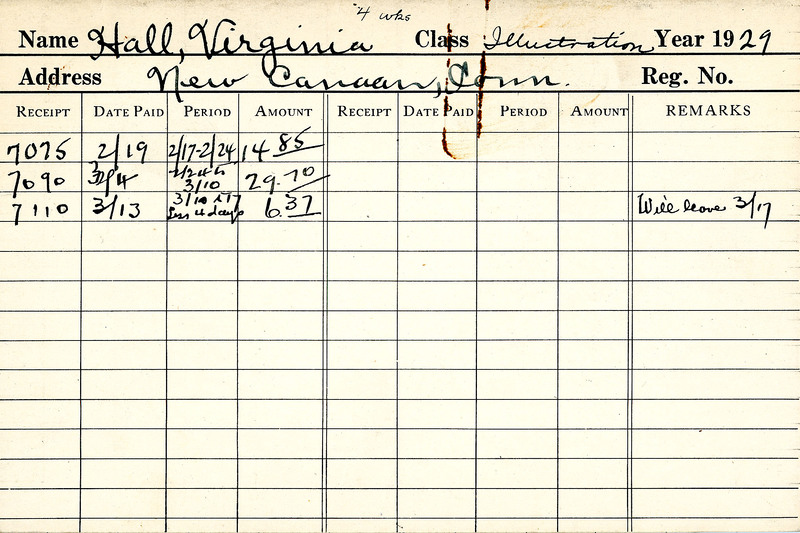 "4 wks
Name Hall, Virginia Class Illustration Year 1929
Address New Canaan, Conn. Reg. No.
RECEIPT DATE PAID PERIOD AMOUNT RECEIPT DATE PAID PERIOD AMOUNT REMARKS
7075 2/19 2/17-2/24 14 85
7090 3/4 2/24 to 3/10 29.70
7110 3/13 3/10 to 17 less 4 days 6.37 Will leave 3/17